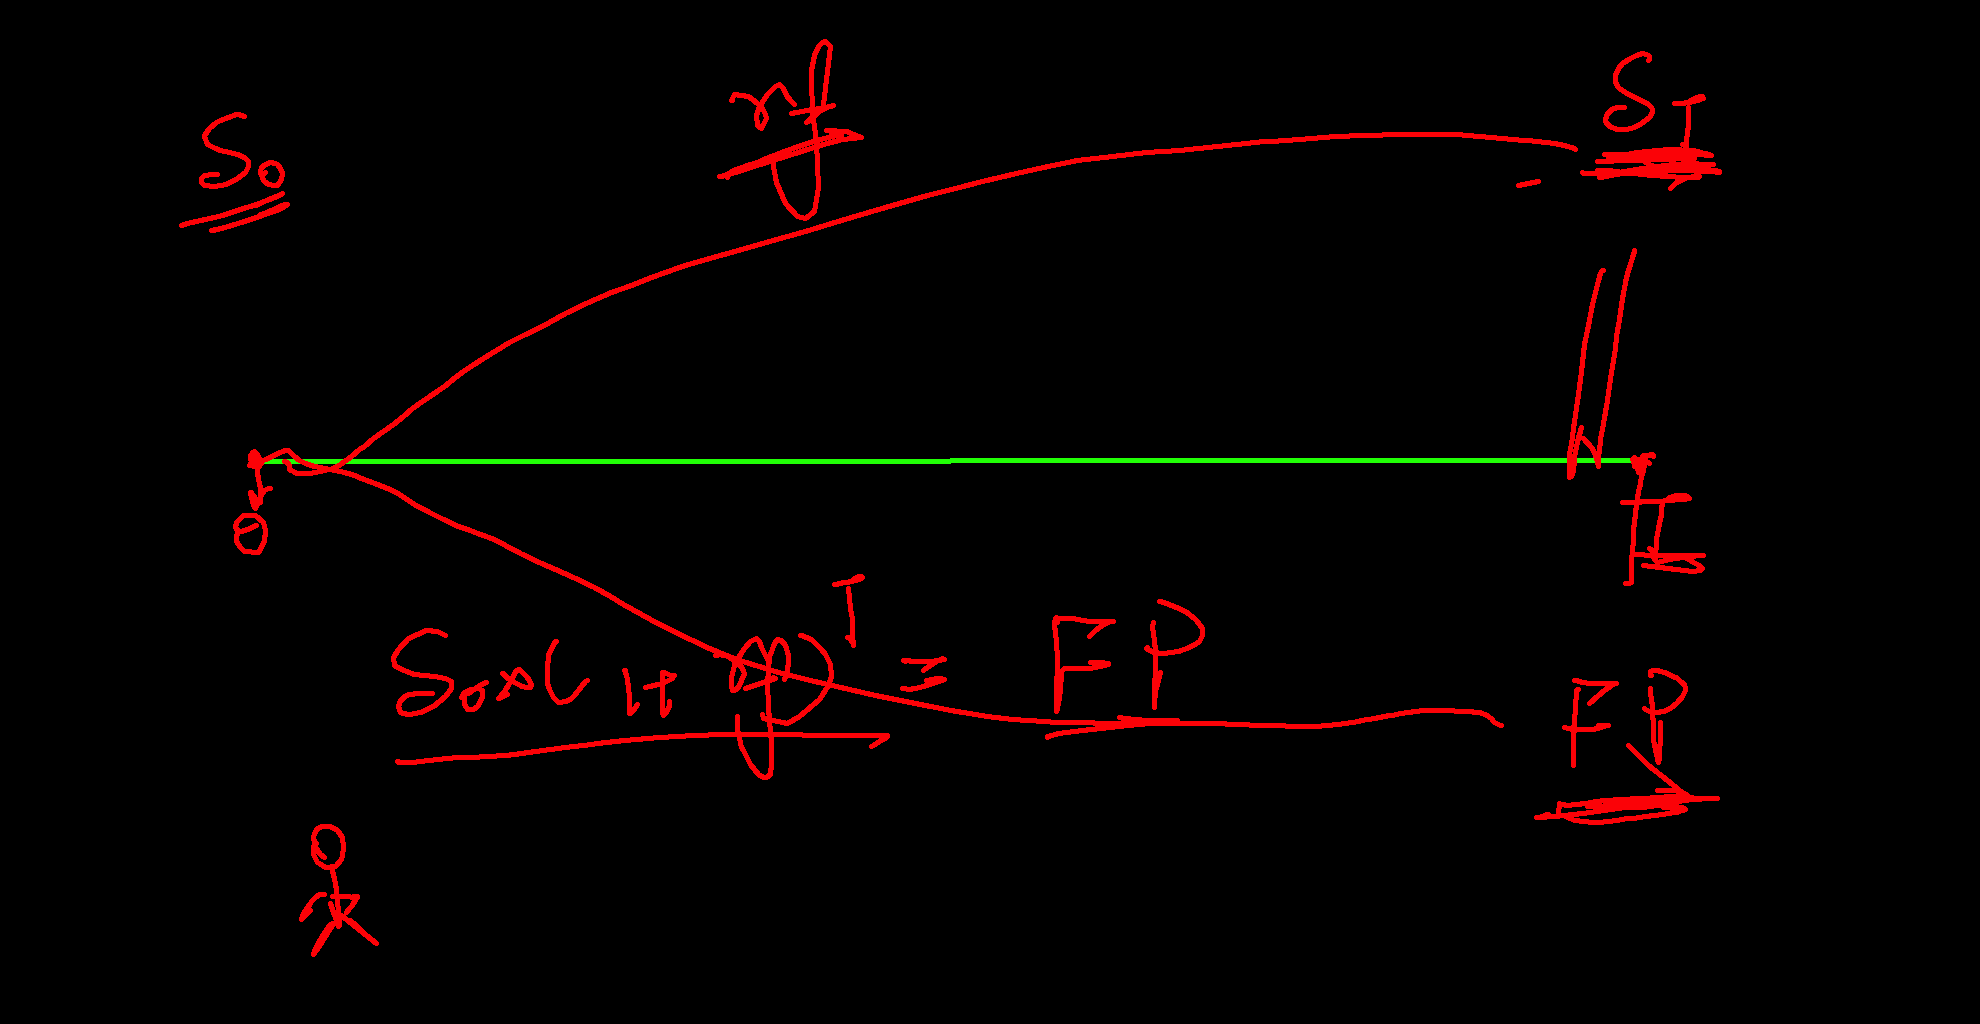 S₀ rf S_T
0 T
S₀ × (1 + rf)^T = FP
FP